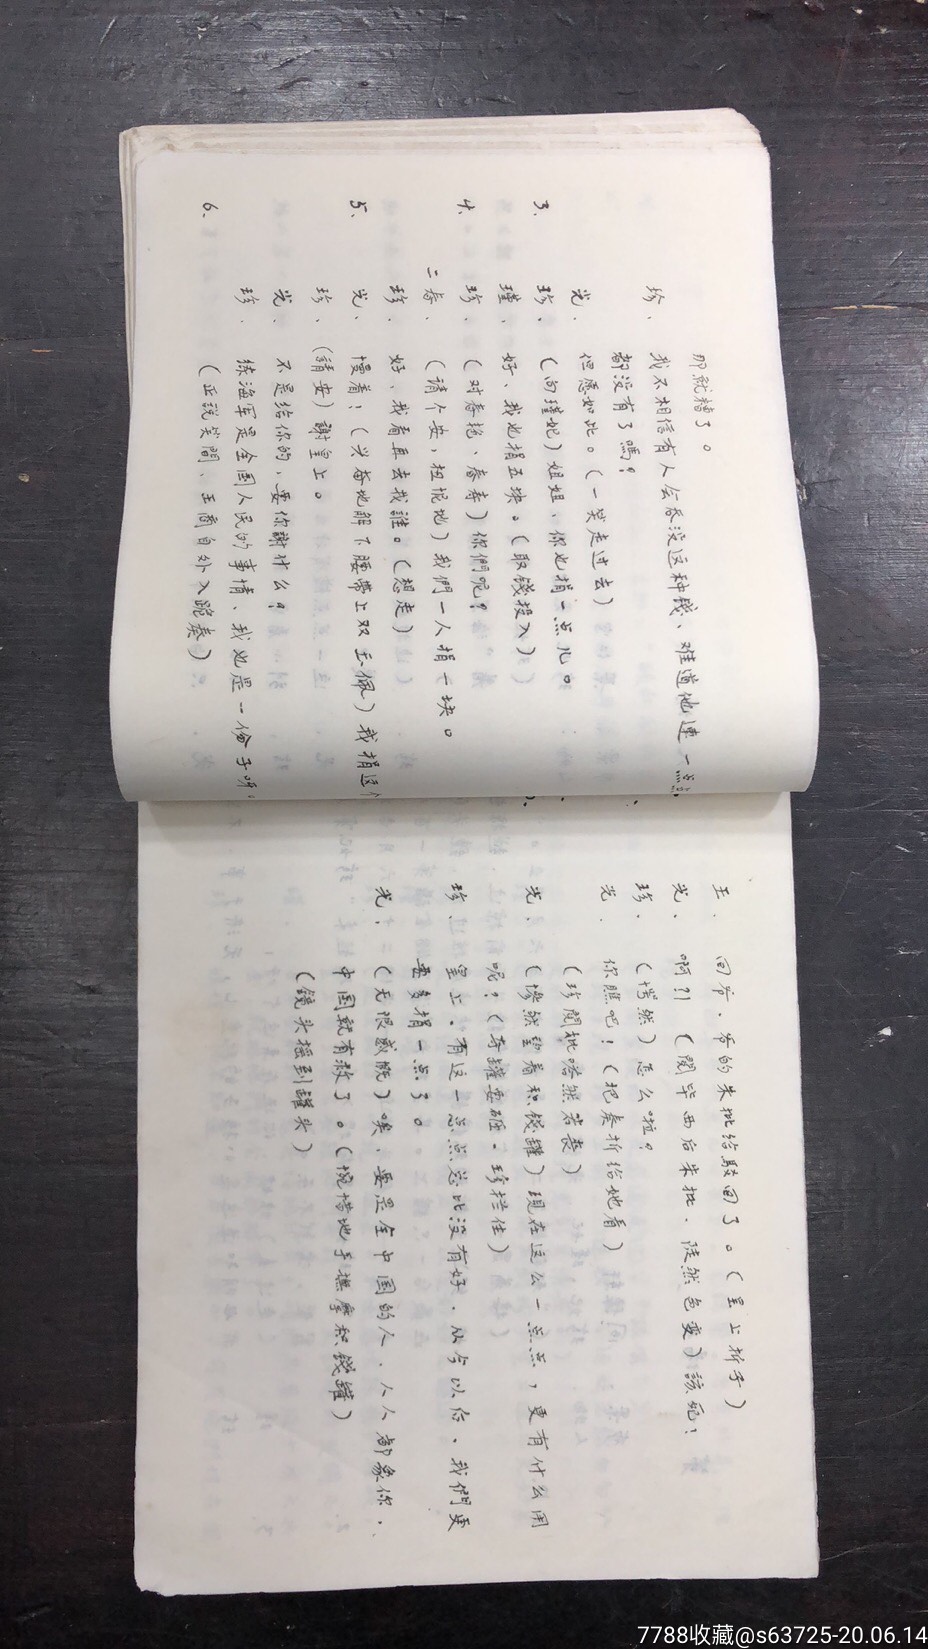 那就糟了。
珍、我不相信有人会吞没这种钱、难道他连一点点
都没有了嗎?
光、但愿如此。(一笑走过去)
3、珍、(向瑾妃)姐姐、你也捐一点儿。
瑾、好、我也捐五块。(取钱投入)
4、珍、(对春艳、春寿)你們呢?
二春、(请个安,扭怩地)我們一人捐一块。
珍、好、我看再去找誰。(想走)
5、光、慢着!(兴奋地解下腰帶上双玉佩)我捐这个
珍、(請安)謝皇上。
光、不是给你的、要你謝什么?
珍、练海军是全国人民的事情、我也是一份子呀。
6、(正説笑間、王商自外入跪奏)
王、回爷、爷的朱批给駁回了。(呈上折子)
光、啊?!(閱毕西后朱批、陡然色变)該死!
珍、(愕然)怎么啦?
光、你瞧吧!(把奏折给她看)
(珍閱批嗒然若丧)
光、(慘然望着积钱罐)現在这么一点点,更有什么用
呢?(夺罐要砸、珍拦住)
珍、皇上、有这一点点总比没有好、从今以后、我們更
要多捐一点了。
光、(无限感慨)唉、要是全中国的人、人人都象你、
中国就有救了。(惋惜地手撫摩积钱罐)
(镜头摇到罐头)
7788收藏@s63725-20.06.14